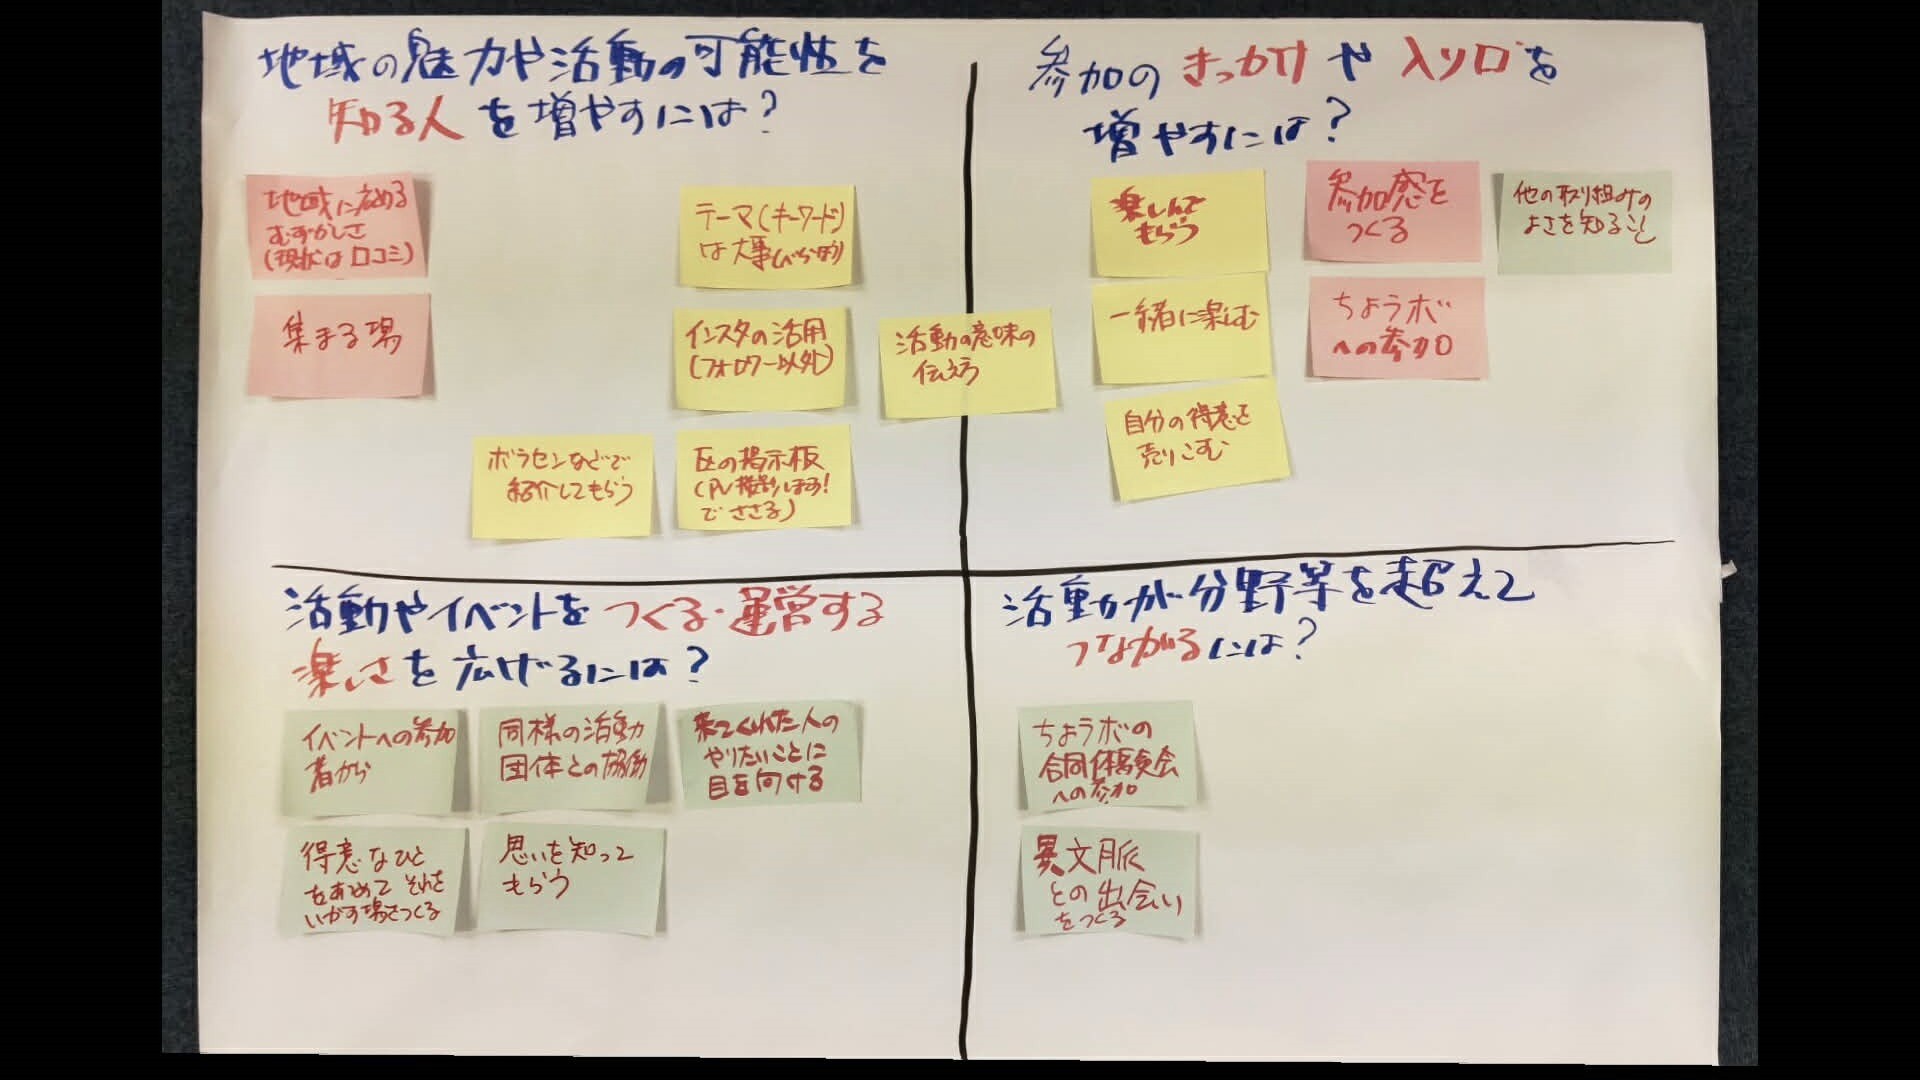 地域の魅力や活動の可能性を
知る人を増やすには?
地域に広める
むずかしさ
(現状は口コミ)
集まる場
テーマ(キーワード)
は大事
インスタの活用
(フォロワー以外)
活動の意味の
伝え方
ボラセンなどで
紹介してもらう
区の掲示板
でささる)
参加のきっかけや入り口を
増やすには?
楽しんで
もらう
一緒に楽しむ
自分の得意を
売りこむ
参加感を
つくる
ちょうボ
への参加
他の取り組みの
よさを知ること
活動やイベントをつくる・運営する
楽しさを広げるには?
イベントへの参加
者から
同様の活動
団体との協働
来てくれた人の
やりたいことに
目を向ける
得意なひと
をあつめてそれを
いかす場をつくる
思いを知って
もらう
活動が分野等を超えて
つながるには?
ちょうボの
合同体験会
への参加
異文脈
との出会い
をつくる